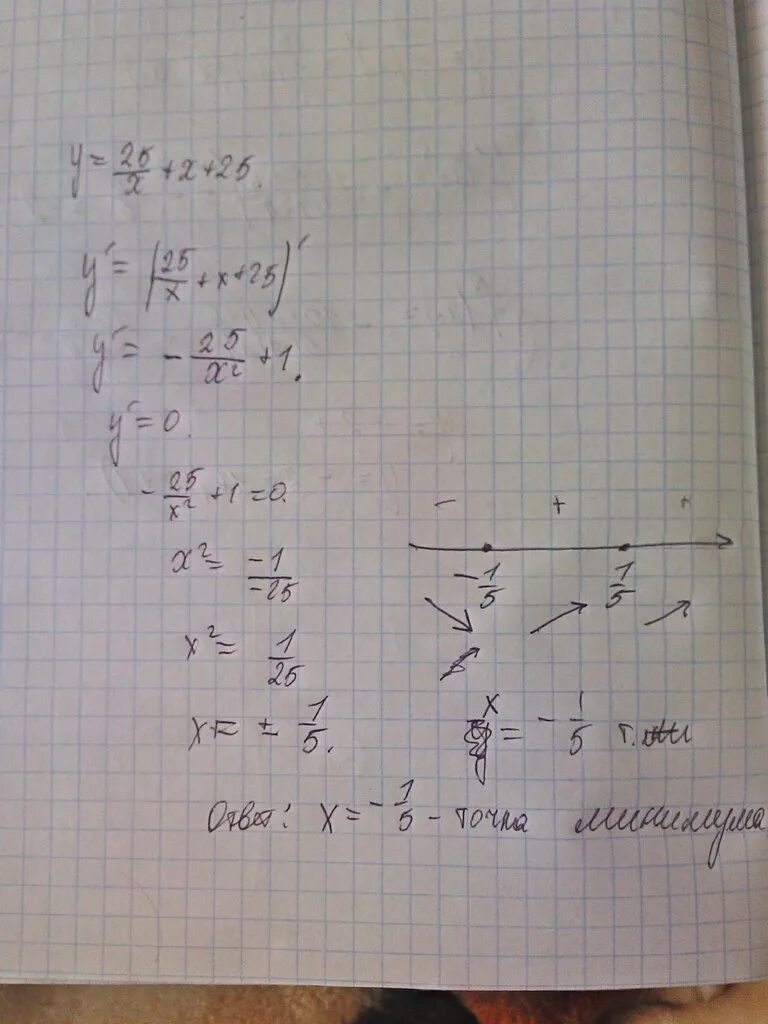 y = 25/x + x + 25.
y' = (25/x + x + 25)'
y' = - 25/x² + 1.
y' = 0.
- 25/x² + 1 = 0.
x² = -1/-25
x² = 1/25
x = ± 1/5.
- + +
-1/5 1/5
x = - 1/5 т.
Ответ: x = - 1/5 - точка минимума